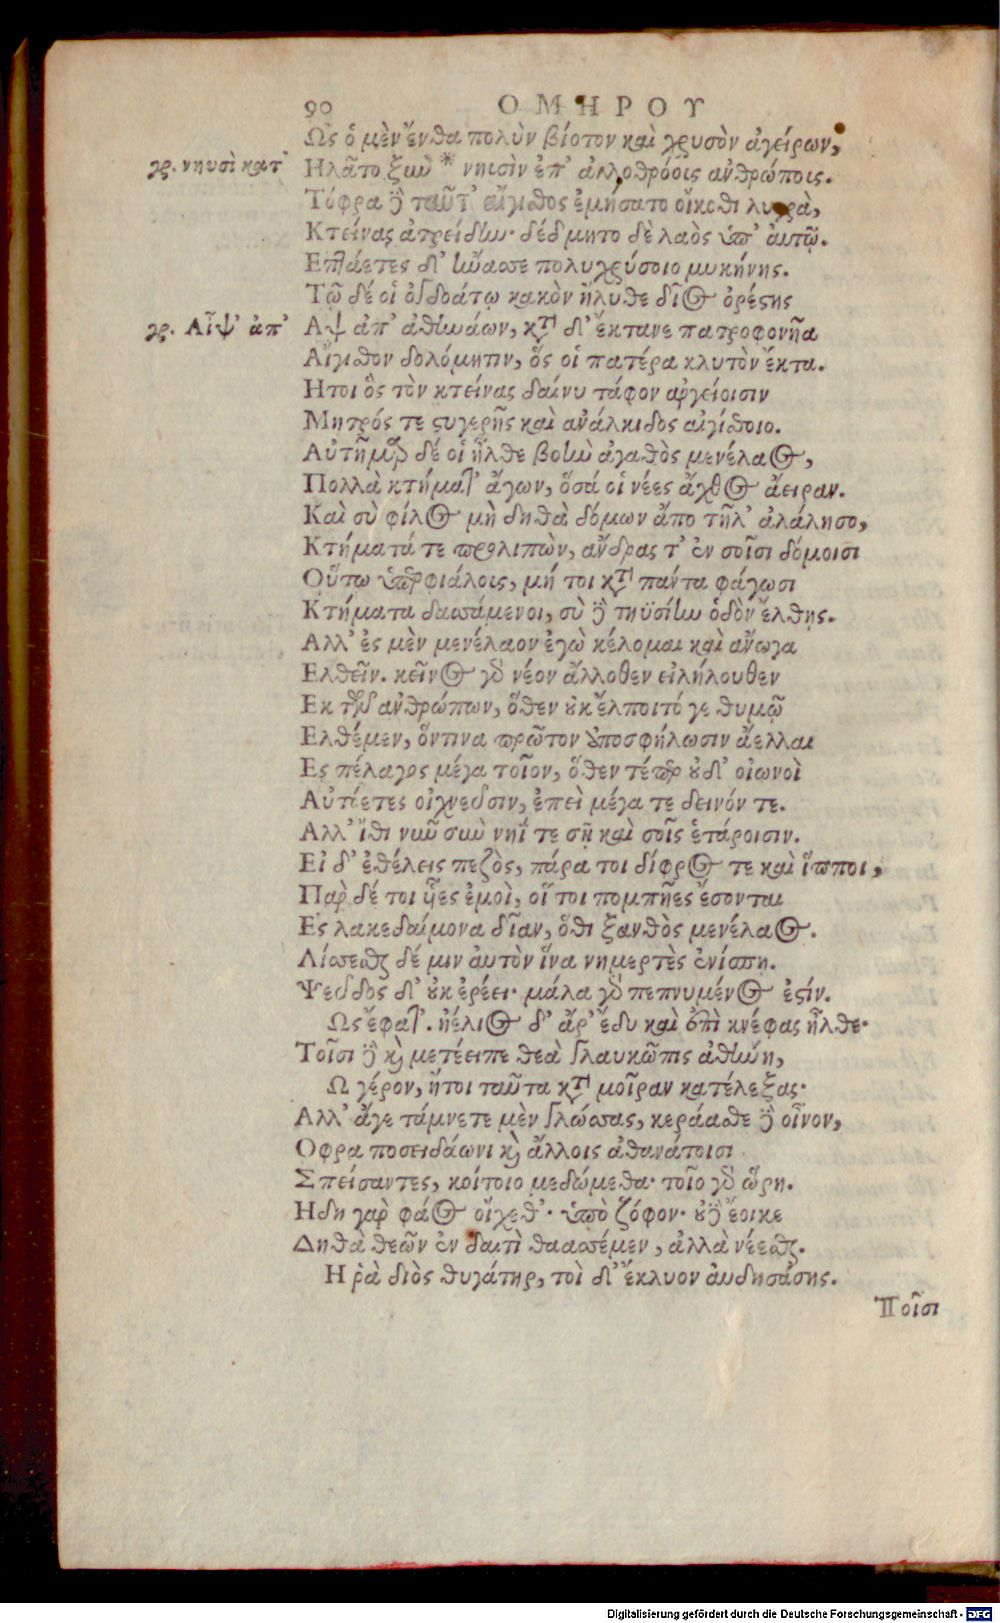 90 ΟΜΗΡΟΥ
Ως ὁ μὲν ἔνθα πολὺν βίοτον καὶ χρυσὸν ἀγείρων,
γρ. νηυσὶ κατ' Ηλᾶτο ξιὼ * νηισὶν ἐπ' ἀλλοθρόοις ἀνθρώποις.
Τόφρα ἢ ταῦτ' αἴγισθος ἐμήσατο οἴκοθι λυγρὰ,
Κτείνας ἀτρείδην· δέδμητο δὲ λαὸς ὑπ' ἀυτῷ.
Επτάετες δ' ἤνασσε πολυχρύσοιο μυκήνης.
Τῷ δέ οἱ ὀγδοάτῳ κακὸν ἤλυθε δῖος ὀρέστης
γρ. Αἶψ' ἀπ' Αψ ἀπ' ἀθηνάων, κτ δ' ἔκτανε πατροφονῆα
Αἴγισθον δολόμητιν, ὅς οἱ πατέρα κλυτὸν ἔκτα.
Ητοι ὃς τὸν κτείνας δαίνυ τάφον αργείοισιν
Μητρός τε στυγερῆς καὶ ἀνάλκιδος αἰγίσθοιο.
Αὐτῆμαρ δέ οἱ ἦλθε βοὴν ἀγαθὸς μενέλαος,
Πολλὰ κτήματ' ἄγων, ὅσά οἱ νέες ἄχθος ἄειραν.
Καὶ σὺ φίλος μὴ δηθὰ δόμων ἄπο τῆλ' ἀλάλησο,
Κτήματά τε προλιπὼν, ἄνδρας τ' ἐν σοῖσι δόμοισι
Οὕτω ὑπερφιάλοις, μή τοι κτ πάντα φάγωσι
Κτήματα δασσάμενοι, σὺ ἢ τηϋσίην ὁδὸν ἔλθῃς.
Αλλ' ἐς μὲν μενέλαον ἐγὼ κέλομαι καὶ ἄνωγα
Ελθεῖν. κεῖνος γδ νέον ἄλλοθεν εἰλήλουθεν
Εκ τῶν ἀνθρώπων, ὅθεν οὐκ ἔλποιτό γε θυμῷ
Ελθέμεν, ὅντινα πρῶτον ἀποσφήλωσιν ἄελλαι
Ες πέλαγος μέγα τοῖον, ὅθεν τέπερ οὐδ' οἰωνοὶ
Αὐτίετες οἰχνεῦσιν, ἐπεὶ μέγα τε δεινόν τε.
Αλλ' ἴθι νιῦ σιὼ νηΐ τε σῇ καὶ σοῖς ἑτάροισιν.
Εἰ δ' ἐθέλεις πεζὸς, πάρα τοι δίφρος τε καὶ ἵπποι,
Πὰρ δέ τοι ὗες ἐμοὶ, οἵ τοι πομπῆες ἔσονται
Ες λακεδαίμονα δῖαν, ὅθι ξανθὸς μενέλαος.
Λίσσεσθαι δέ μιν ἀυτὸν ἵνα νημερτὲς ἐνίσπῃ.
Ψεῦδος δ' οὐκ ἐρέει· μάλα γδ πεπνυμένος ἐστίν.
Ως ἔφατ'. ἠέλιος δ' ἄρ' ἔδυ καὶ ἐπὶ κνέφας ἦλθε·
Τοῖσι ἢ κὶ μετέειπε θεὰ γλαυκῶπις ἀθήνη,
Ω γέρον, ἤτοι ταῦτα κτ μοῖραν κατέλεξας·
Αλλ' ἄγε τάμνετε μὲν γλώσσας, κεράασθε ἢ οἶνον,
Οφρα ποσειδάωνι κὶ ἄλλοις ἀθανάτοισι
Σπείσαντες, κοίτοιο μεδώμεθα· τοῖο γδ ὥρη.
Ηδη γαρ φάος οἴχεθ'· ὑπὸ ζόφον· οὐἢ ἔοικε
Δηθὰ θεῶν ἐν δαιτὶ θαασσέμεν, ἀλλὰ νέεσθαι.
Η ῥὰ διὸς θυγάτηρ, τοὶ δ' ἔκλυον ἀυδησάσης.
Ποῖσι
Digitalisierung gefördert durch die Deutsche Forschungsgemeinschaft - DFG